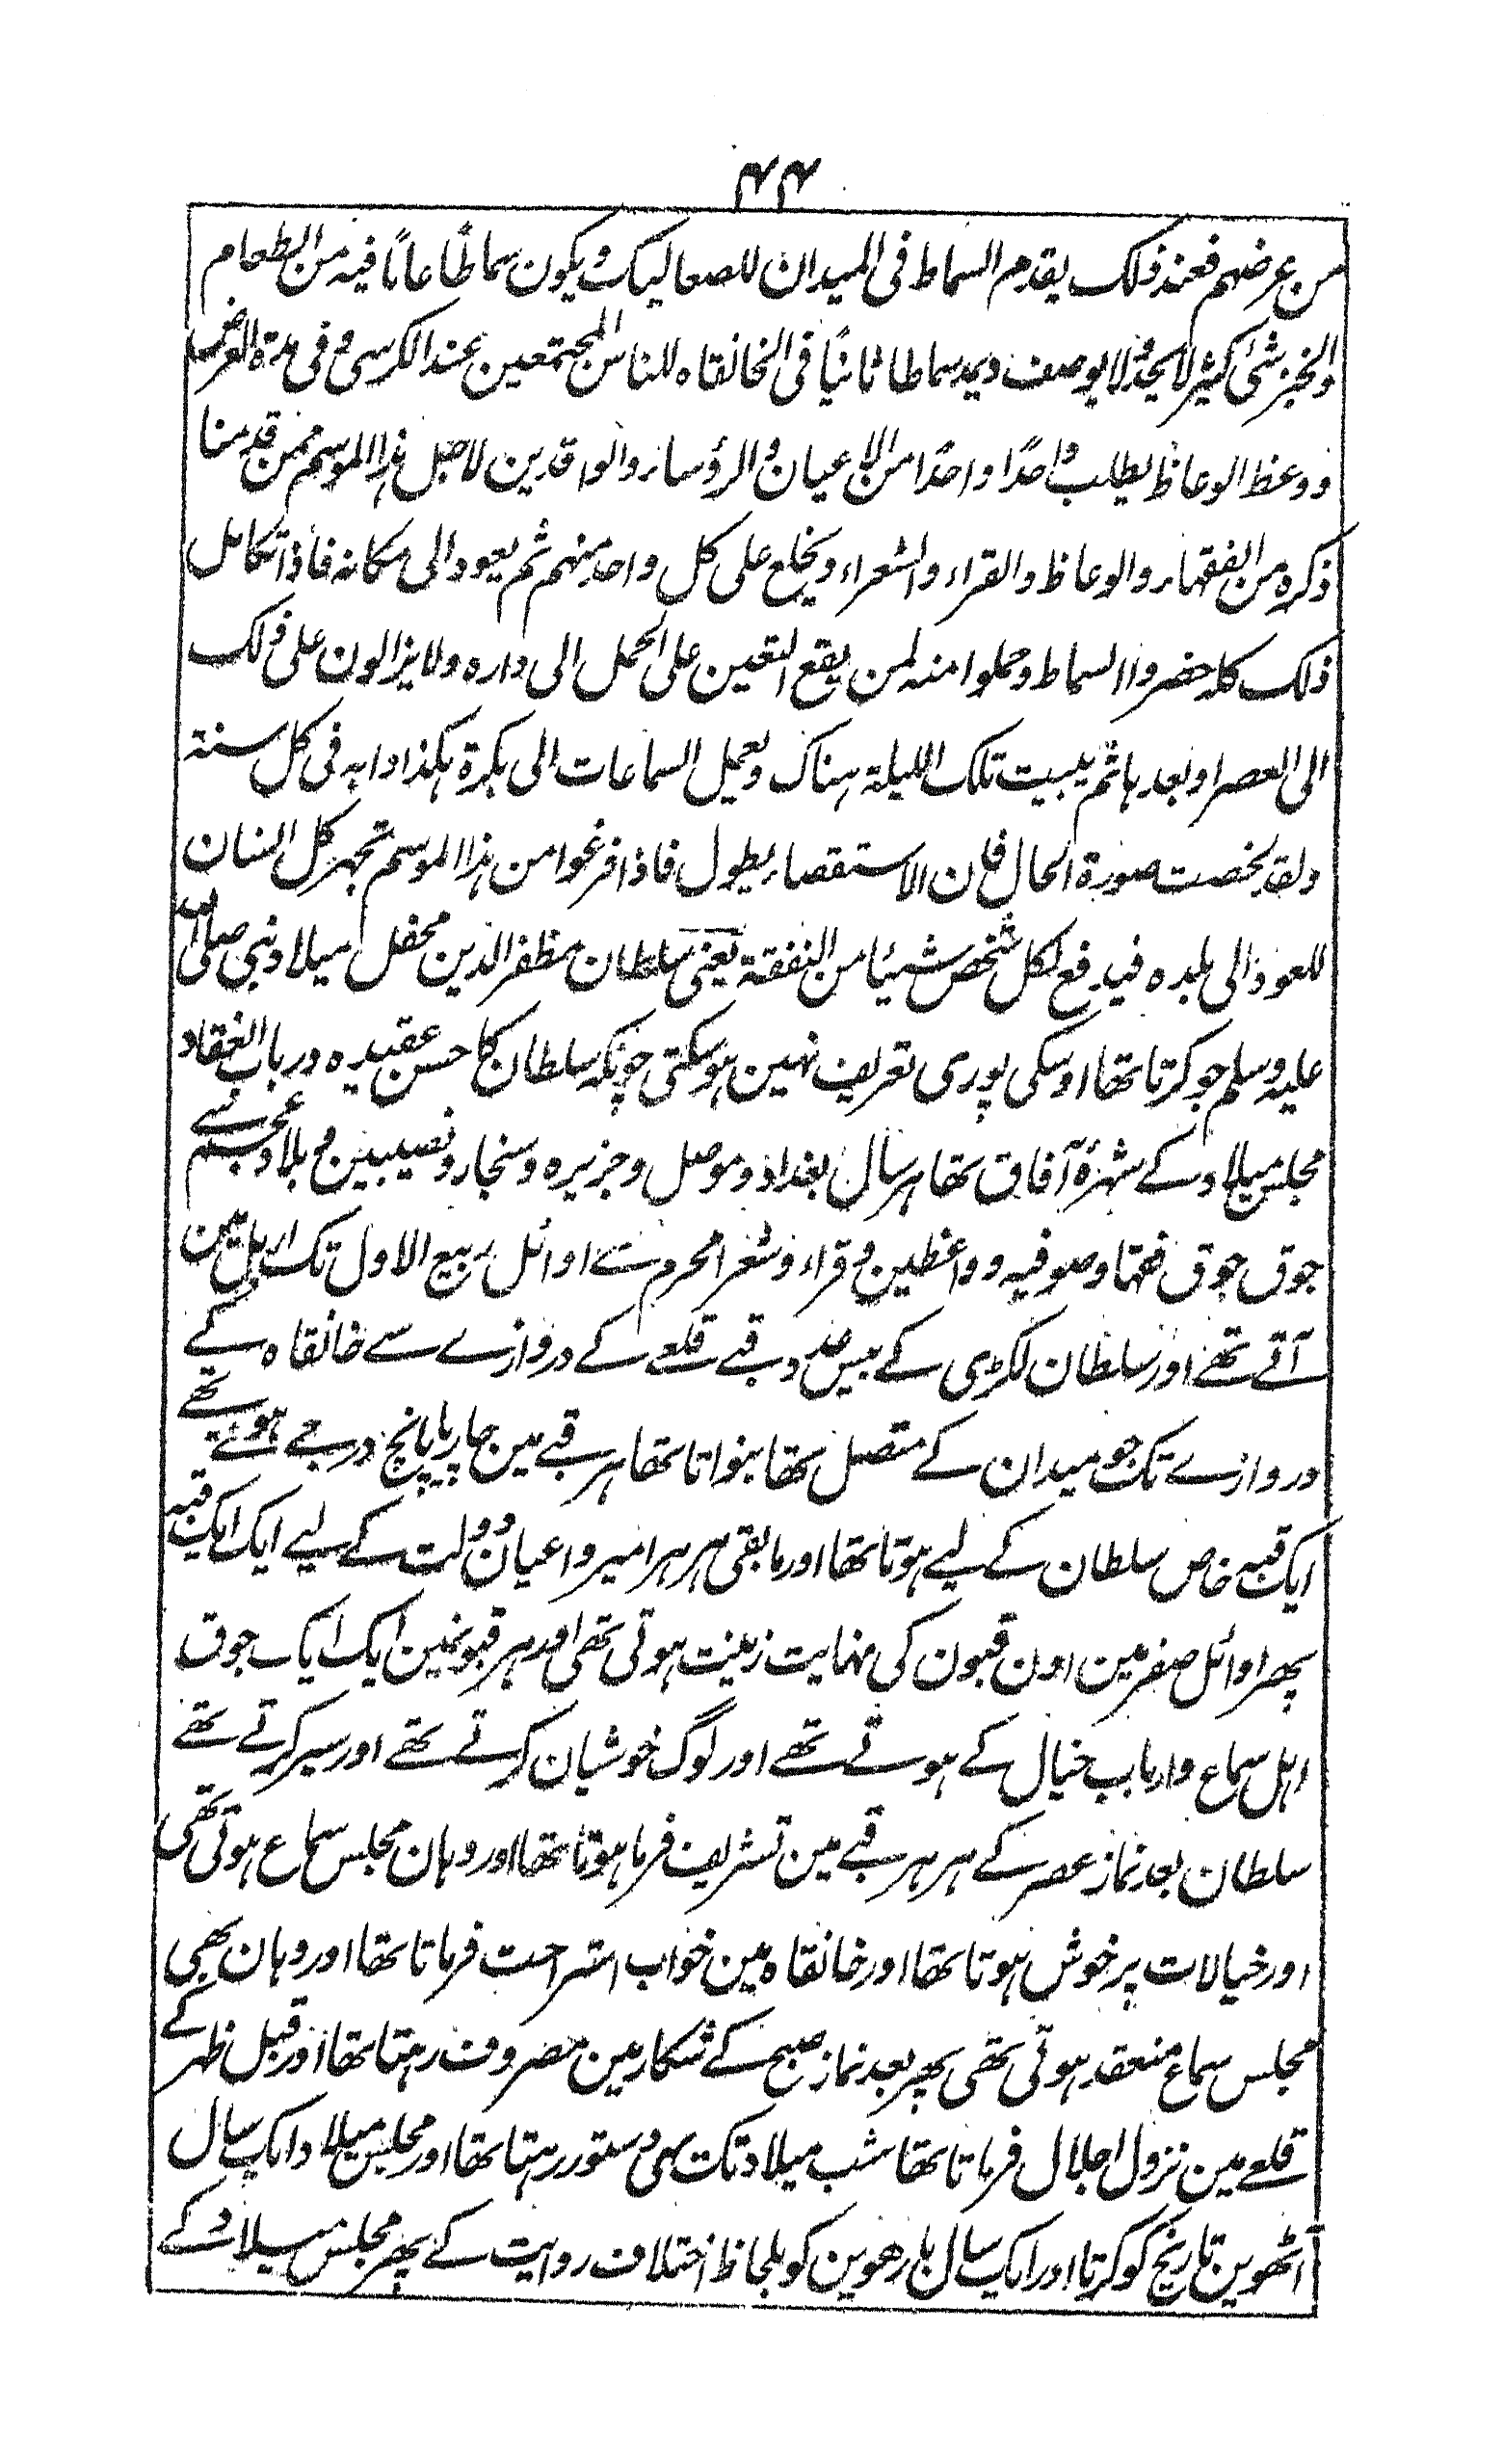 ۴۴
من عرضهم فعند ذلک یقدم السماط فی المیدان للصعالیک ویکون سماطًا عامًا فیه من الطعام
والخبز شئ کثیر لا یحد ولا یوصف ویمد سماطا ثانیًا فی الخانقاه للناس المجتمعین عند الکرسی وفی مدة العرض
ووعظ الوعاظ یطلب واحدًا واحدًا من الاعیان والرؤساء والوافدین لاجل هذا الموسم ممن قدمنا
ذکره من الفقهاء والوعاظ والقراء والشعراء ویخلع علی کل واحد منهم ثم یعود الی مکانه فاذا تکامل
ذلک کله حضروا السماط وحملوا منه لمن یقع التعین علی الحمل الی داره ولا یزالون علی ذلک
الی العصر او بعدها ثم یبیت تلک اللیلة هناک ویعمل السماعات الی بکرة هکذا دابه فی کل سنة
ولقد لخصت صورة الحال فان الاستقصاء یطول فاذا فرغوا من هذا الموسم تجهز کل انسان
للعود الی بلده فیدفع لکل شخص شیئا من النفقة یعنی سلطان مظفر الدین محفل میلاد نبی صلی الله
علیه وسلم جو کرتا تھا اوسکی پوری تعریف نہین ہو سکتی چونکہ سلطان کا حسن عقیدہ در باب انعقاد
مجلس میلاد کے شہرۂ آفاق تھا ہر سال بغداد و موصل و جزیرہ و سنجار و نصیبین و بلاد عجم سے
جوق جوق فقہا و صوفیہ و واعظین و قراء و شعرا محرم سے اوائل ربیع الاول تک اربل مین
آتے تھے اور سلطان لکڑی کے بیس عدد قبے قلعے کے دروازے سے خانقاہ کے
دروازے تک جو میدان کے متصل تھا بنواتا تھا ہر قبے مین چار یا پانچ درجے ہوتے تھے
ایک قبہ خاص سلطان کے لیے ہوتا تھا اور مابقی ہر ہر امیر و اعیان دولت کے لیے ایک ایک قبہ
پھر اوائل صفر مین اون قبون کی نہایت زینت ہوتی تھی اور ہر قبونمین ایک ایک جوق
اہل سماع و ارباب خیال کے ہوتے تھے اور لوگ خوشیان کرتے تھے اور سیر کرتے تھے
سلطان بعد نماز عصر کے ہر ہر قبے مین تشریف فرما ہوتا تھا اور وہان مجلس سماع ہوتی تھی
اور خیالات پر خوش ہوتا تھا اور خانقاہ مین خواب استراحت فرماتا تھا اور وہان بھی
مجلس سماع منعقد ہوتی تھی پھر بعد نماز صبح کے شکار مین مصروف رہتا تھا اور قبل ظہر کے
قلعے مین نزول اجلال فرماتا تھا شب میلاد تک یہی دستور رہتا تھا اور مجلس میلاد ایک سال
آٹھوین تاریخ کو کرتا اور ایک سال بارھوین کو بلحاظ اختلاف روایت کے پھر مجلس میلاد کے